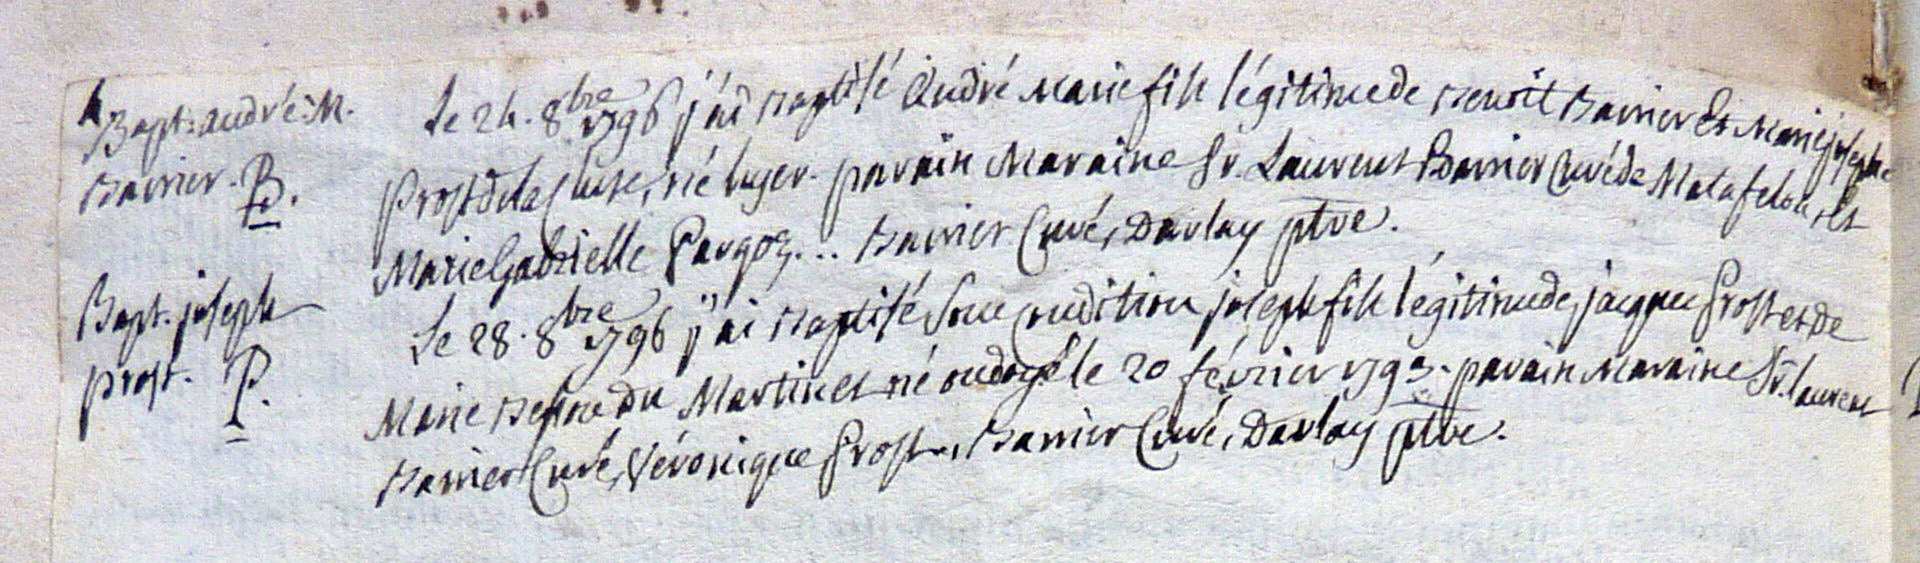 Bapt. andré-M.
Barrier. B.
Le 24. 8bre 1796 j'ai Baptisé André Marie fils légitime de Benoit Barrier Et Marie josephe
Prost de la Cluse, né hyer. parain Maraine Sr. Laurent Barrier Curé de Matafelon, et
Marie Gabrielle Gaugoz... Barrier Curé, Darlay ptre.
Bapt. joseph
prost. P.
Le 28. 8bre 1796 j'ai Baptisé sous condition joseph fils légitime de jacque Prost et de
Marie du Martinet né ondoyé le 20 février 1793. parain Maraine Sr. laurent
Barrier Curé, Véronique Prost, Barrier Curé, Darlay ptre.